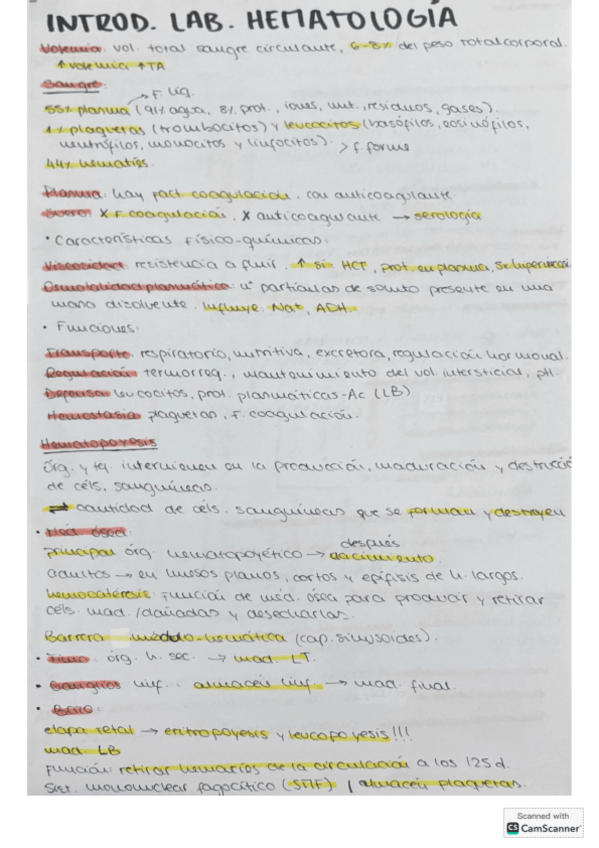 INTROD. LAB. HEMATOLOGÍA
Volemia: vol. total sangre circulante, 6-8% del peso total corporal.
↑ volemia ↑TA
Sangre:
→ F. líq.
55% plasma (91% agua, 8% prot., iones, nut., residuos, gases).
1% plaquetas (trombocitos) y leucocitos (basófilos, eosinófilos,
neutrófilos, monocitos y linfocitos). > f. forme
44% hematíes.
Plasma: hay fact coagulación, con anticoagulante.
Suero: X F coagulación, X anticoagulante → serología
• Características físico-químicas:
Viscosidad: resistencia a fluir, ↑ si HCT, prot. en plasma,
Osmolalidad plasmática: nº partículas de soluto presente en una
masa disolvente. Influye: Na+, ADH.
• Funciones:
Transporte: respiratorio, nutritiva, excretora, regulación hormonal.
Regulación: termorreg., mantenimiento del vol. intersticial, pH.
Defensa: leucocitos, prot. plasmáticas-Ac (LB)
Hemostasia: plaquetas, f. coagulación.
Hematopoyesis
Órg. y tej. intervienen en la producción, maduración y destrucció
de céls. sanguíneas.
⇌ cantidad de céls. sanguíneas que se forman y destruyen
• Méd. ósea:
principal órg. hematopoyético → después nacimiento.
adultos → en huesos planos, cortos y epífisis de h. largos.
hemocatéresis: Función de méd. ósea para producir y retirar
céls. mad. /dañadas y desecharlas.
Barrera médulo-hemática (cap. sinusoides).
• Timo: órg. h. sec. → mad. LT.
• Ganglios linf.: almacén linf. → mad. final.
• Bazo:
etapa fetal → eritropoyesis y leucopoyesis!!!
mad. LB
Función: retirar hematíes de la circulación a los 125 d.
Sist. mononuclear fagocítico (SMF) / almacén plaquetas.
Scanned with
CS CamScanner